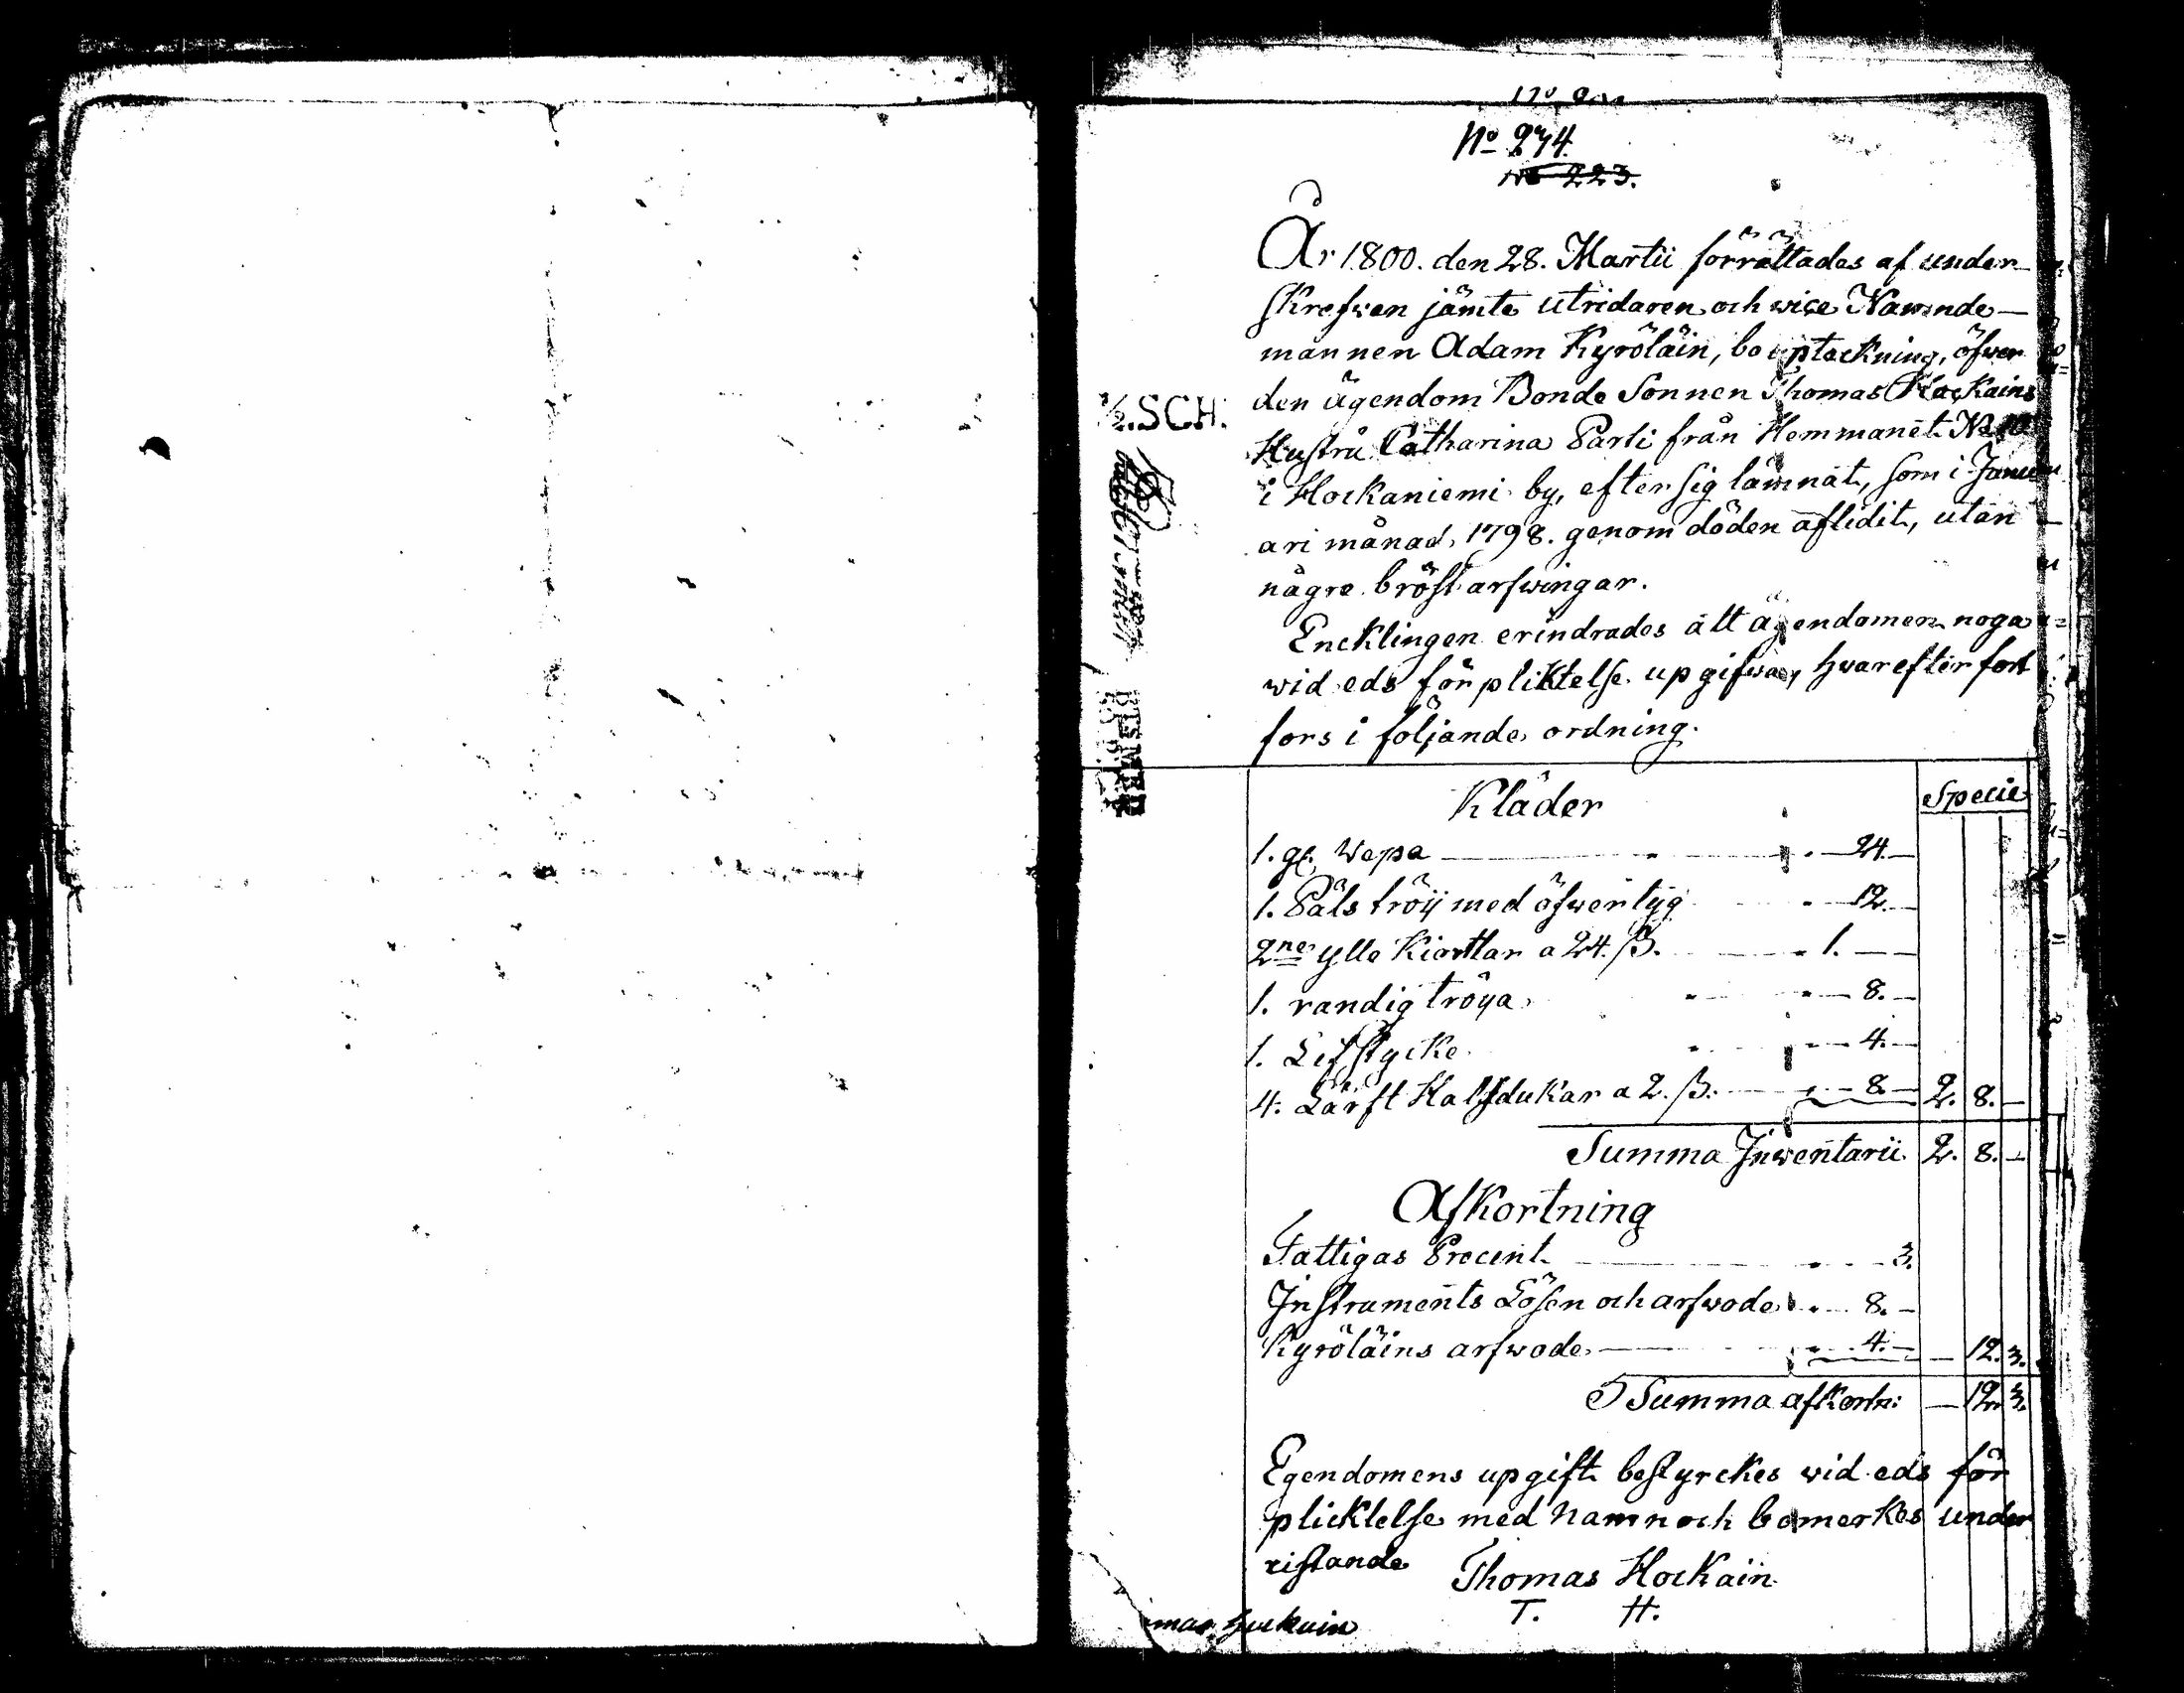 No 274.
No 223.
År 1800. den 28. Martii förrättades af under-
skrefwen jämte utridaren och wice Nämnde-
mannen Adam Kyröläin, bo uptäckning, öfwer
den ägendom Bonde Sonnen Thomas Hockains
½.SCH.
Hustru Catharina Parti från Hemmanet No 10
i Hockaniemi by, efter sig lämnat, som i Janu
ari månad, 1798. genom döden aflidit, utan
någre bröst arfwingar.
Encklingen erindrades att ägendomen noga
wid eds förpliktelse upgifwa, hvarefter fort
fors i följande ordning.
Kläder Specie
1. gl. Wepa — 24. —
1. Päls tröij med öfwertyg — 12. —
2ne ylle Kiortlar a 24. ß. — 1. —
1. randig tröya — 8. —
1. Lifstycke — 4. —
4. Lärft Halsdukar a 2. ß. — 8 — 2. 8. —
Summa Inwentarii 2. 8. —
Afkortning
Fattigas Procent — 3.
Instruments Lösen och arfwode — 8. —
Kyröläins arfwode — 4. — — 12. 3.
Summa afkortn: — 12. 3.
Egendomens upgift bestyrckes wid eds för
plicktelse med namn och bomerkes under
ristande Thomas Hockain
T. H.
mas Huckain